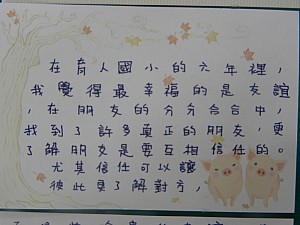 在育人國小的六年裡，
我覺得最幸福的是友誼
，在朋友的分分合合中，
找到了許多真正的朋友，更
了解朋友是要互相信任的。
尤其信任可以讓
彼此更了解對方，